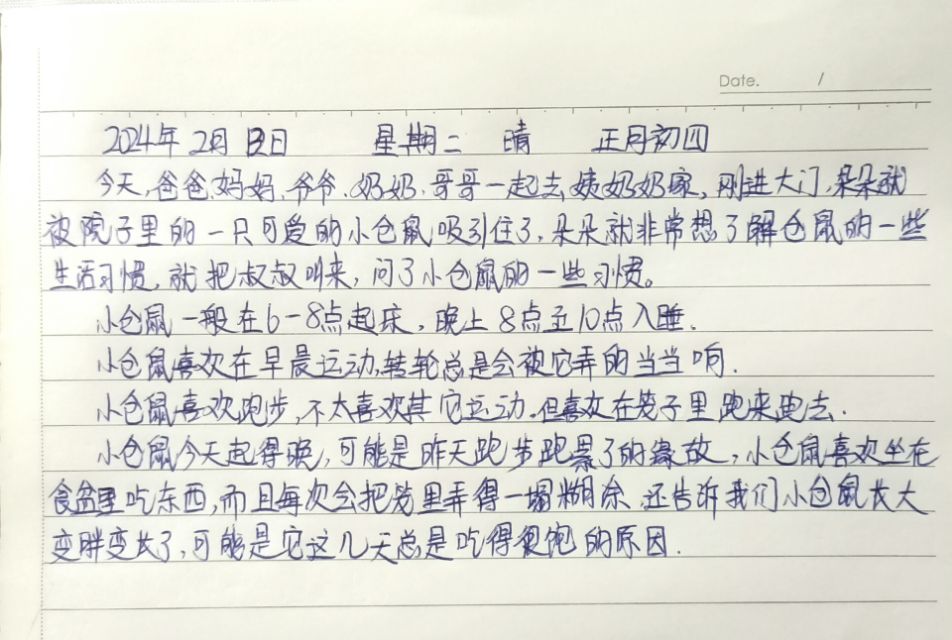 Date. /
2024年2月 日 星期二 晴 正月初四
今天,爸爸、妈妈、爷爷、奶奶、哥哥一起去姨奶奶家,刚进大门,朵朵就
被院子里的一只可爱的小仓鼠吸引住了,朵朵就非常想了解仓鼠的一些
生活习惯,就把叔叔叫来,问了小仓鼠的一些习惯。
小仓鼠一般在6-8点起床,晚上8点至10点入睡.
小仓鼠喜欢在早晨运动,转轮总是会被它弄的当当响.
小仓鼠喜欢跑步,不太喜欢其它运动.但喜欢在笼子里跑来跑去.
小仓鼠今天起得晚,可能是昨天跑步跑累了的缘故,小仓鼠喜欢坐在
食盆里吃东西,而且每次会把笼里弄得一塌糊涂.还告诉我们小仓鼠长大
变胖变长了,可能是它这几天总是吃得很饱的原因.